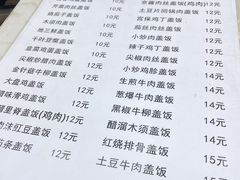 芹菜肉丝盖饭 10元
木须盖饭 10元
地三鲜盖饭 12元
干炒豆腐盖饭 12元
金腐鸡蛋盖饭 12元
尖椒炒腊肉盖饭 12元
金针菇牛柳盖饭 12元
大盘鸡盖饭 12元
糊味滑鸡盖饭 12元
里脊盖饭(鸡肉) 12元
沫豇豆盖饭 12元
条盖饭 12元
肉丝盖饭(鸡肉) 12元
土豆片回锅肉盖饭 12元
宫保鸡丁盖饭 12元
辣子鸡丁盖饭 12元
小炒肉盖饭 12元
尖椒肉丝盖饭 12元
小炒鸡胗盖饭 12元
生煎牛肉盖饭 14元
葱爆牛肉盖饭 14元
黑椒牛柳盖饭 14元
醋溜木须盖饭 14元
红烧排骨盖饭 15元
土豆牛肉盖饭 15元